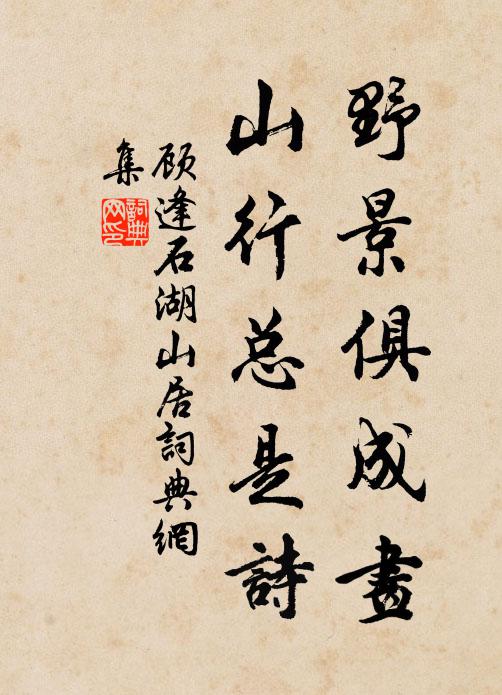 野景俱成畫
山行总是詩
顾逢石湖山居詞典網
集
詞典
网印